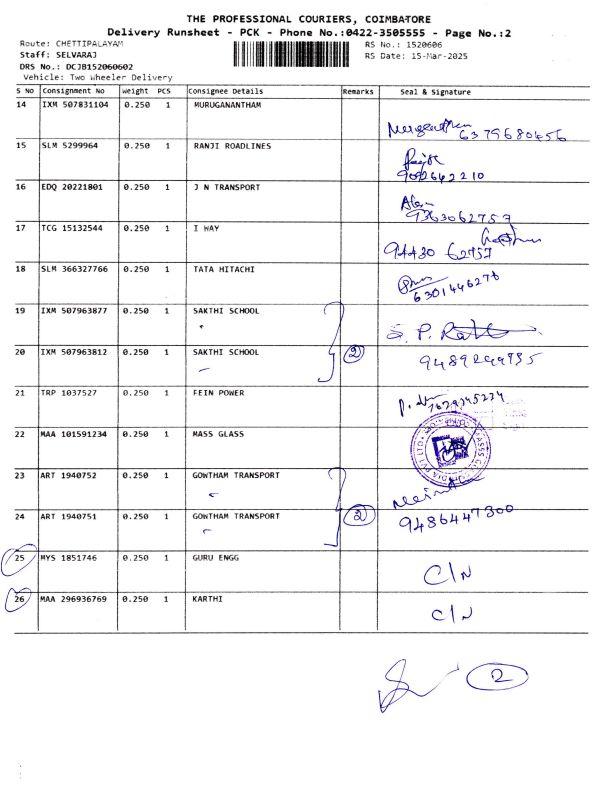 THE PROFESSIONAL COURIERS, COIMBATORE
Delivery Runsheet - PCK - Phone No.:0422-3505555 - Page No.:2
Route: CHETTIPALAYAM RS No.: 1520606
Staff: SELVARAJ RS Date: 15-Mar-2025
DRS No.: DCJB152060602
Vehicle: Two Wheeler Delivery
S No Consignment No Weight PCS Consignee Details Remarks Seal & Signature
14 IXM 507831104 0.250 1 MURUGANANTHAM
6379680456
15 SLM 5299964 0.250 1 RANJI ROADLINES
9092642210
16 EDQ 20221801 0.250 1 J N TRANSPORT
9363062757
17 TCG 15132544 0.250 1 I WAY
94430 62957
18 SLM 366327766 0.250 1 TATA HITACHI
6301446278
19 IXM 507963877 0.250 1 SAKTHI SCHOOL
20 IXM 507963812 0.250 1 SAKTHI SCHOOL 2
21 TRP 1037527 0.250 1 FEIN POWER
22 MAA 101591234 0.250 1 MASS GLASS
23 ART 1940752 0.250 1 GOWTHAM TRANSPORT
24 ART 1940751 0.250 1 GOWTHAM TRANSPORT 2 9486447300
25 MYS 1851746 0.250 1 GURU ENGG C/N
26 MAA 296936769 0.250 1 KARTHI C/N
2